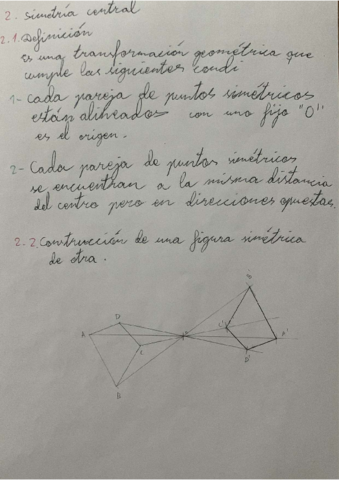 2. Simetría central
2.1. Definición
Es una transformación geométrica que
cumple las siguientes condi
1- Cada pareja de puntos simétricos
están alineados con uno fijo "O"
es el origen.
2- Cada pareja de puntos simétricos
se encuentran a la misma distancia
del centro pero en direcciones opuestas.
2.2. Construcción de una figura simétrica
de otra.
D
A
C
B
C'
A'
D'